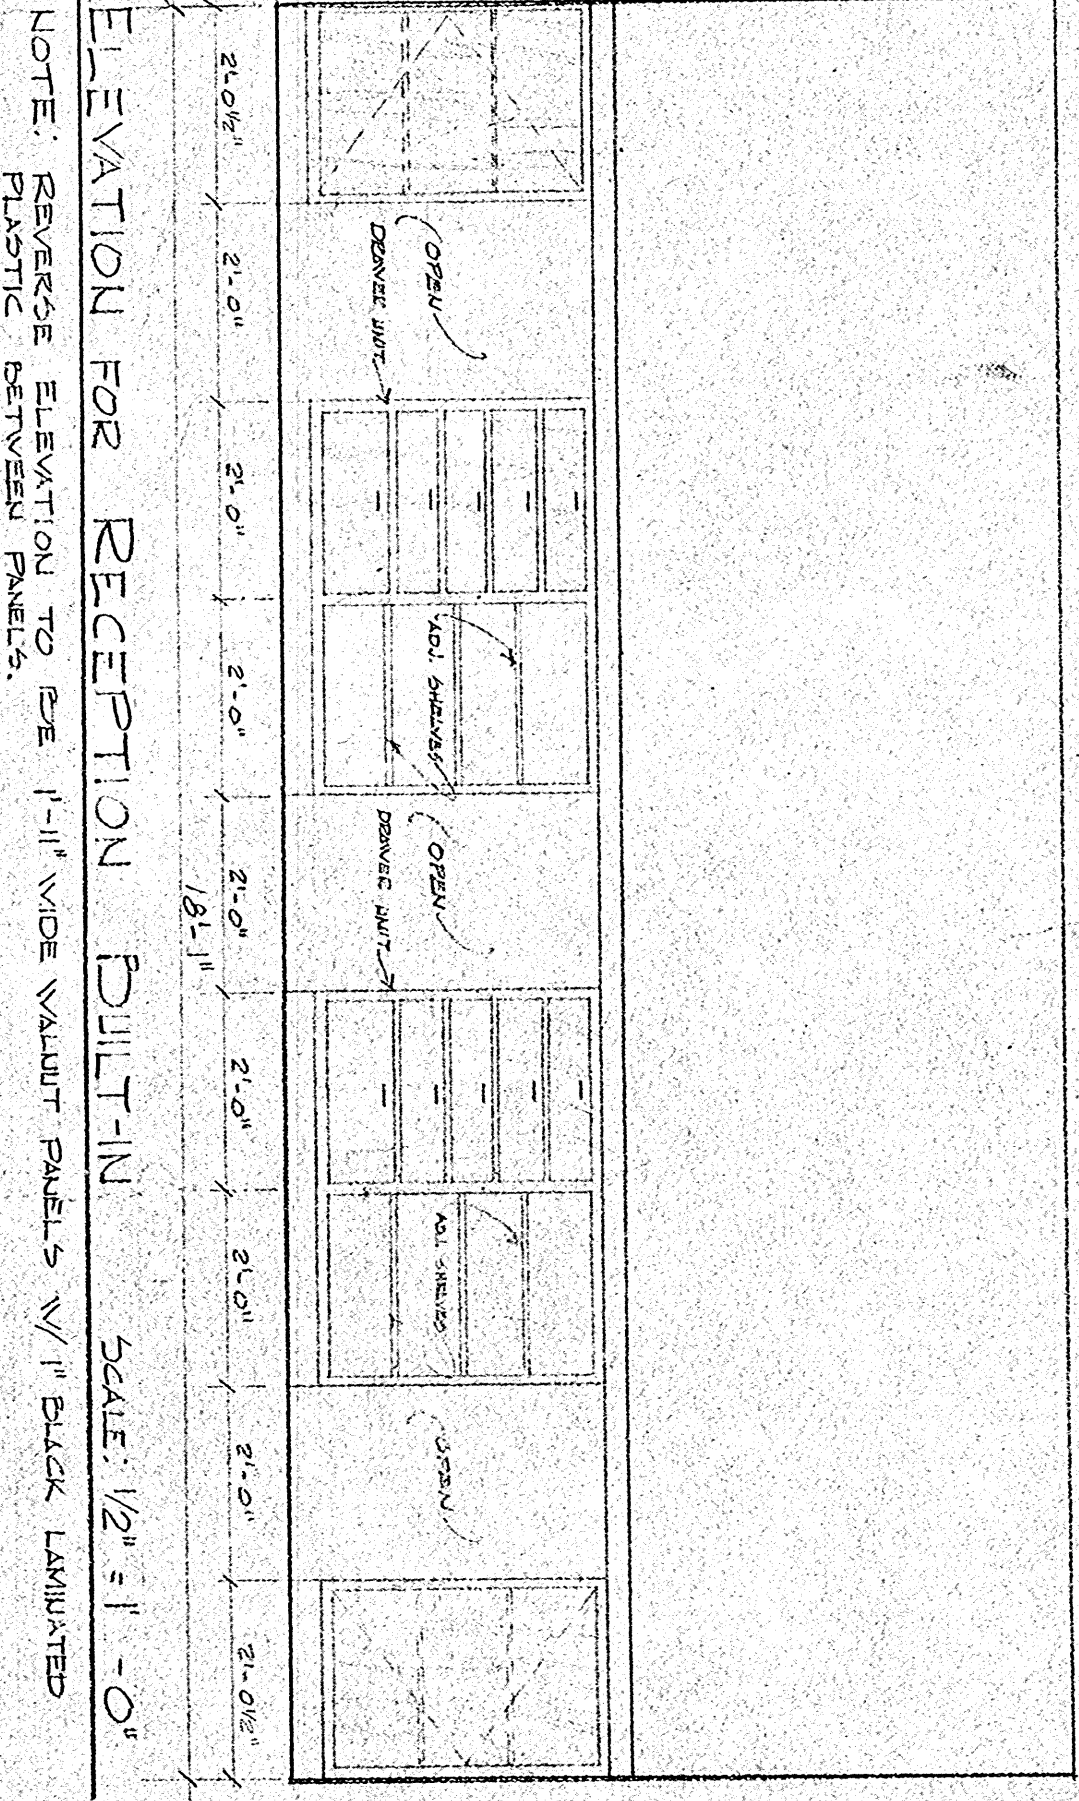 OPEN
DRAWER UNIT
ADJ. SHELVES
OPEN
DRAWER UNIT
ADJ. SHELVES
OPEN
2'-0 1/2"
2'-0"
2'-0"
2'-0"
2'-0"
2'-0"
2'-0"
2'-0"
2'-0 1/2"
18'-1"
ELEVATION FOR RECEPTION BUILT-IN SCALE: 1/2" = 1'-0"
NOTE: REVERSE ELEVATION TO BE 1'-11" WIDE WALNUT PANELS W/ 1" BLACK LAMINATED
PLASTIC BETWEEN PANELS.